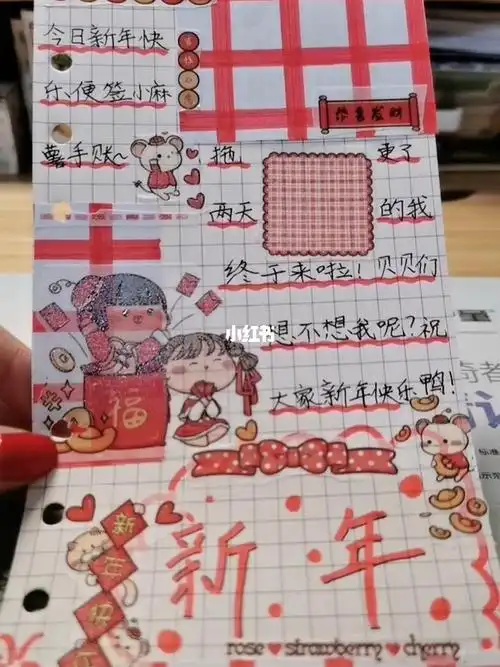 今日新年快
乐,便签小麻
恭喜发财
薯手账~ 拖 更了
两天 的我
终于来啦!贝贝们
小红书
想不想我呢?祝
福
大家新年快乐鸭!
新
年
新 年
rose strawberry cherry